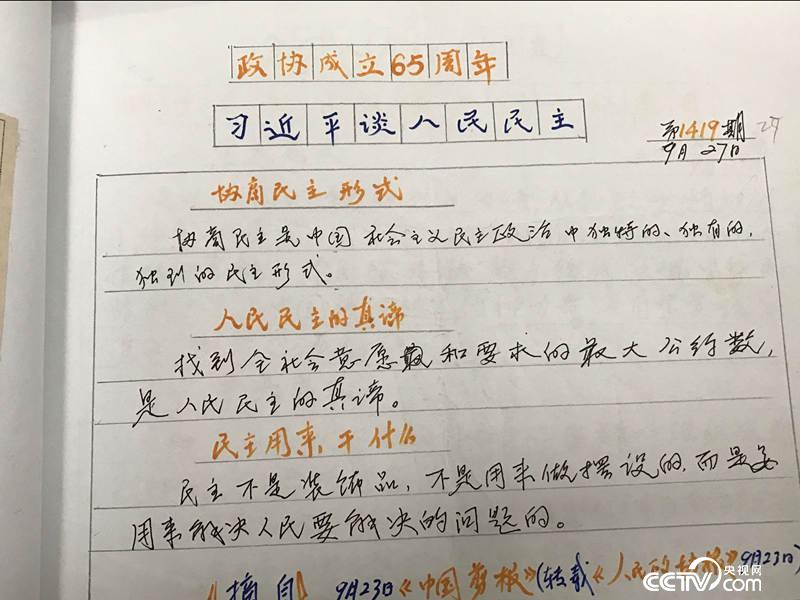 政协成立65周年
习近平谈人民民主
第1419期
9月27日
协商民主形式
协商民主是中国社会主义民主政治中独特的、独有的、
独到的民主形式。
人民民主的真谛
找到全社会意愿和要求的最大公约数，
是人民民主的真谛。
民主用来干什么
民主不是装饰品，不是用来做摆设的，而是要
用来解决人民要解决的问题的。
摘自 9月23日《中国剪报》(转载《人民政协报》9月23日)
CCTV.com 央视网